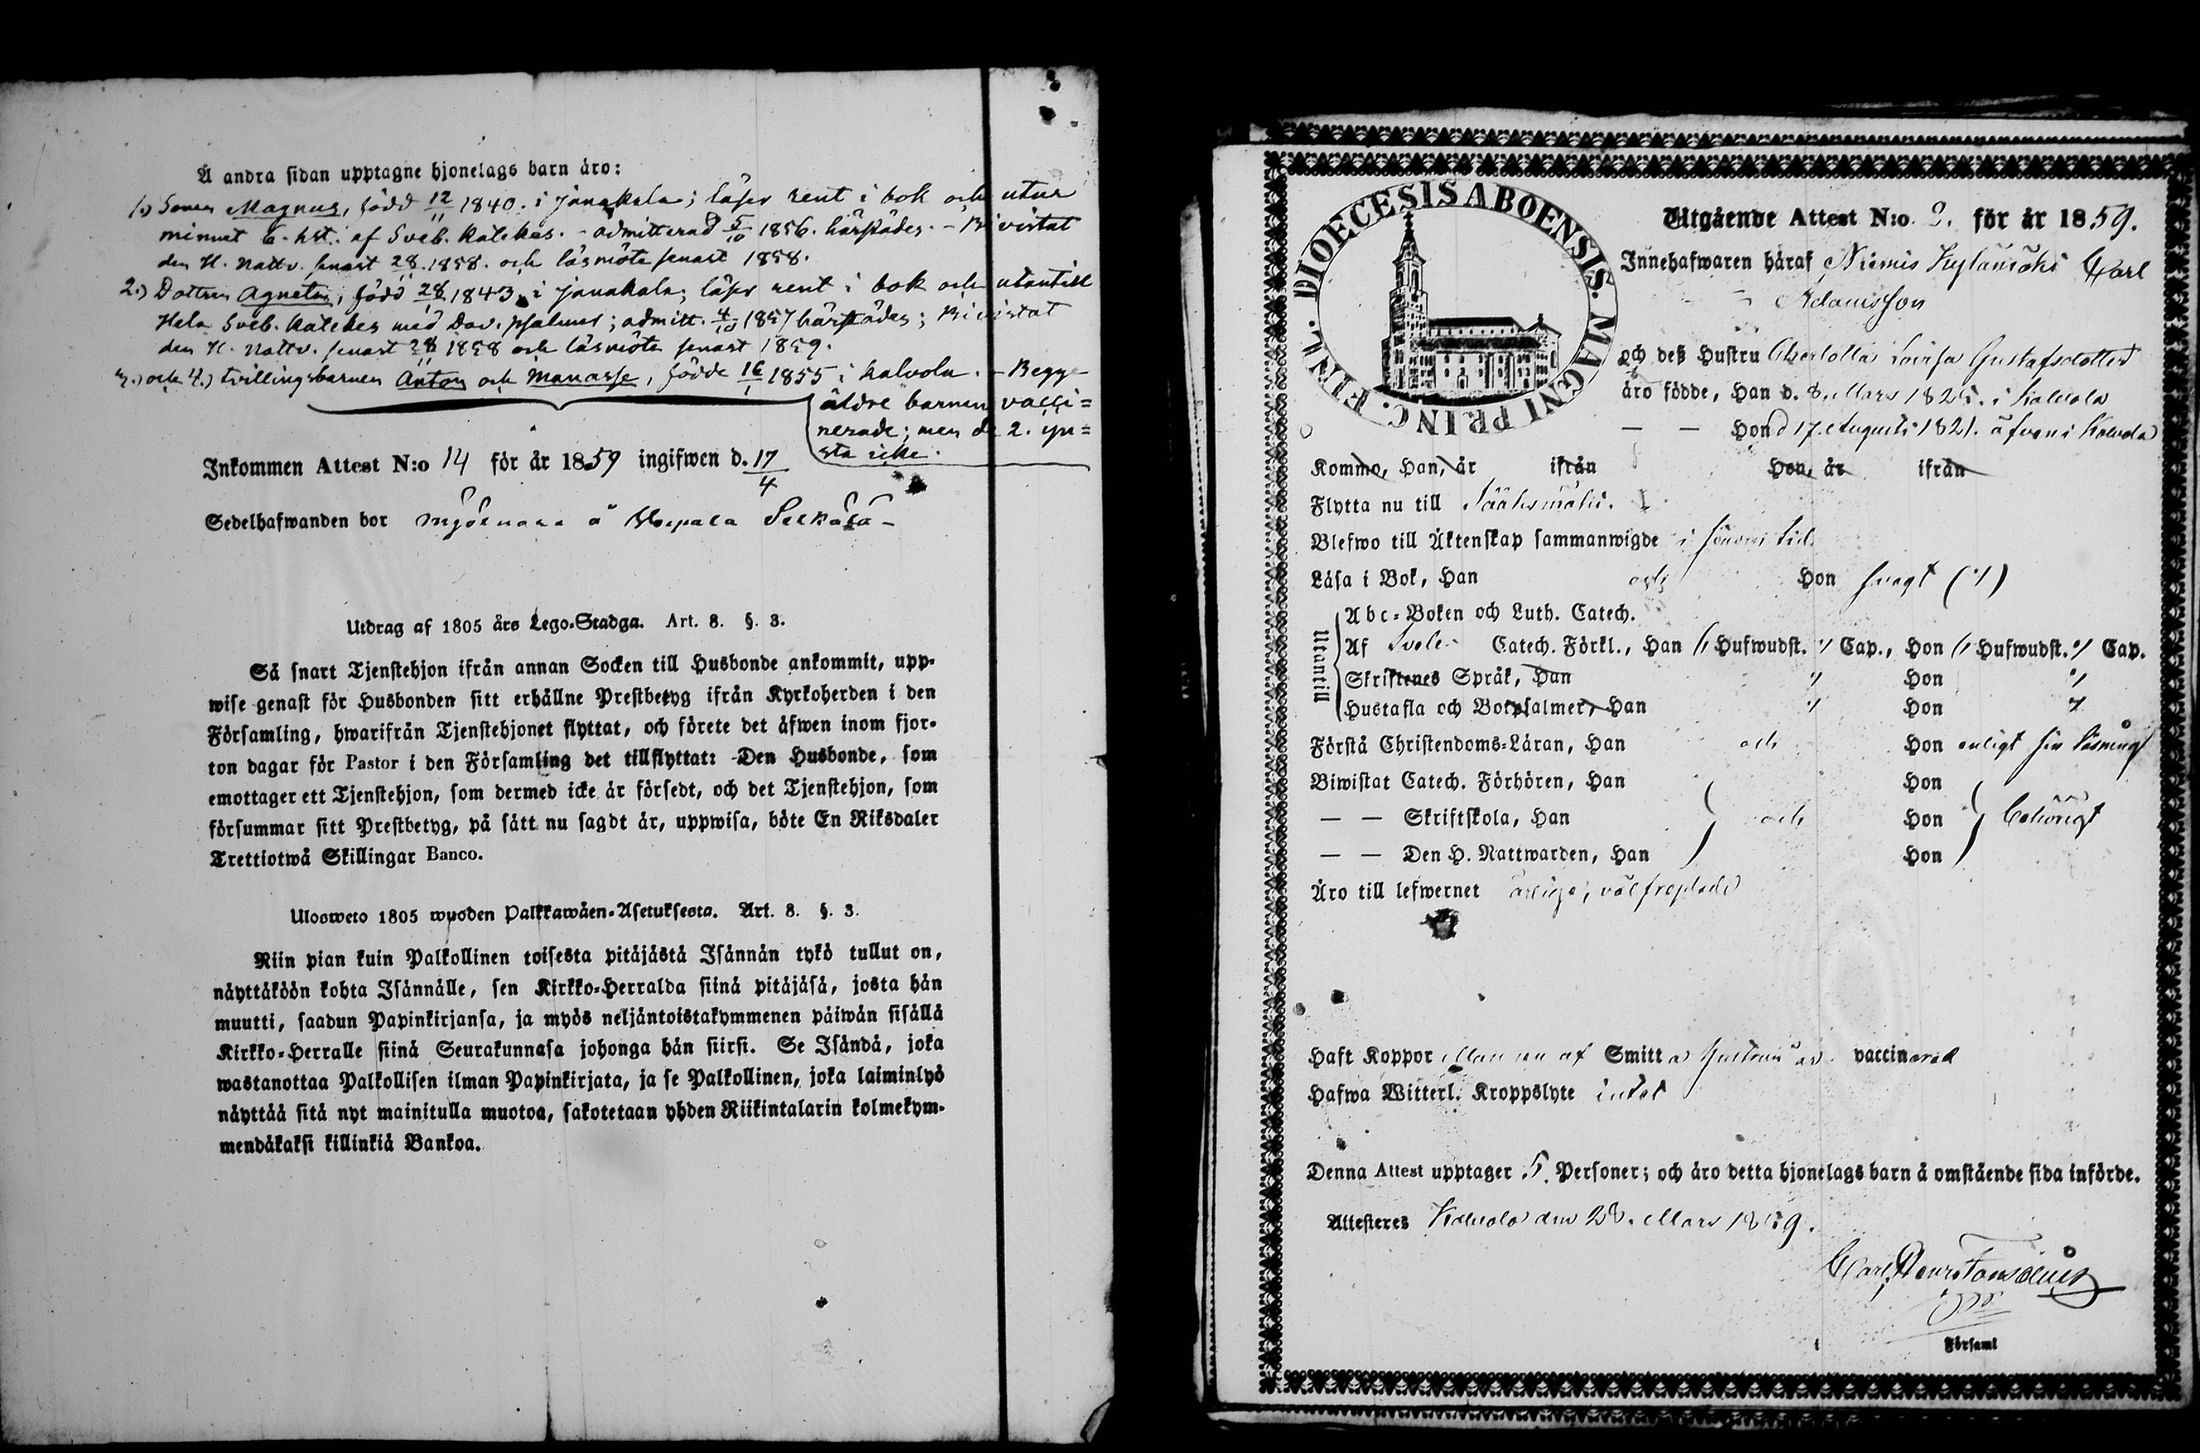 Å andra sidan upptagne hjonelags barn äro:
1.) Sonen Magnus, född 12/11 1840. i Janakala; läser rent i bok och utur
minnet 6. hst. af Sveb. katekes. - admitterad 5/10 1856. härstädes. - Bivistat
den H. Nattv. senast 28/11 1858. och läsmöte senast 1858.
2.) Dottren Agneta, född 28/ 1843. i Janakala; läser rent i bok och utantill
Hela Sveb. katekes med Dav. psalmer; admitt. 4/10 1857 härstädes; Bivistat
den H. Nattv. senast 28/11 1858 och läsmöte senast 1859.
3.) och 4.) tvillingsbarnen Anton och Manasse, födde 16/1 1855 i Kalvola. - Begge
äldre barnen vacci=
nerade; men de 2. yn=
sta icke.
Inkommen Attest N:o 14 för år 1859 ingifwen d. 17/4
Sedelhafwanden bor å
Utdrag af 1805 års Lego-Stadga. Art. 8. §. 3.
Så snart Tjenstehjon ifrån annan Socken till Husbonde ankommit, upp-
wise genast för Husbonden sitt erhållne Prestbetyg ifrån Kyrkoherden i den
Församling, hwarifrån Tjenstehjonet flyttat, och förete det äfwen inom fjor-
ton dagar för Pastor i den Församling det tillflyttat: Den Husbonde, som
emottager ett Tjenstehjon, som dermed icke är försedt, och det Tjenstehjon, som
försummar sitt Prestbetyg, på sätt nu sagdt är, uppwisa, böte En Riksdaler
Trettiotwå Skillingar Banco.
Ulosweto 1805 wuoden Palkkawäen-Asetuksesta. Art. 8. §. 3.
Niin pian kuin Palkollinen toisesta pitäjästä Isännän tykö tullut on,
näyttäköön kohta Isännälle, sen Kirkko-Herralda siinä pitäjäsä, josta hän
muutti, saadun Papinkirjansa, ja myös neljäntoistakymmenen päiwän sisällä
Kirkko-Herralle siinä Seurakunnasa johonga hän siirsi. Se Isändä, joka
wastanottaa Palkollisen ilman Papinkirjata, ja se Palkollinen, joka laiminlyö
näyttää sitä nyt mainitulla muotoa, sakotetaan yhden Riikintalarin kolmekym-
mendäkaksi killinkiä Bankoa.
DIOECESIS ABOENSIS. MAGNI PRINC. FINL.
Utgående Attest N:o 2. för år 1859.
Innehafwaren häraf Carl
Adamsson
och deß Hustru Charlotta Lovisa Gustafsdotter
äro födde, Han d. 8. Mars i Kalvola
— — Hon d 17. Augusti 1821. äfven i Kalvola
Kommo, Han, är ifrån Hon, är ifrån
Flytta nu till Sääksmäki.
Blefwo till Äktenskap sammanwigde i sinom tid.
Läsa i Bok, Han och Hon svagt (//)
Abc-Boken och Luth. Catech.
Utantill
Af Sveb. Catech. Förkl., Han 6 Hufwudst. // Cap., Hon 6 Hufwudst. // Cap.
Skriftenes Språk, Han // Hon //
Hustafla och Botpsalmer, Han // Hon //
Förstå Christendoms-Läran, Han och Hon enligt sin läsning
Biwistat Catech. Förhören, Han Hon
— — Skriftskola, Han och Hon behörigt
— — Den H. Nattwarden, Han Hon
Äro till lefwernet ärlige, välfrejdade
Haft Koppor Mannen af Smitta Hustrun är vaccinerad
Hafwa Witterl. Kroppslyte intet
Denna Attest upptager 5. Personer; och äro detta hjonelags barn å omstående sida införde.
Attesteres Kalvola den 28. Mars 1859.
Carl
Församl